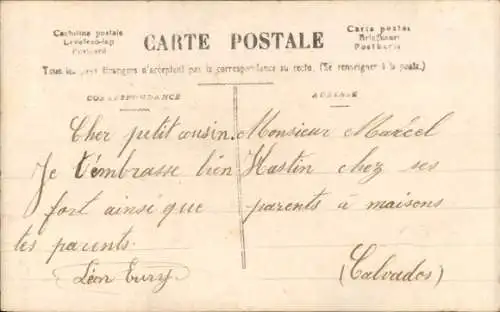 Cartolina postale
Levelezo-lap
Postcard
CARTE POSTALE
Carte postes
Briefkaart
Postkarte
Tous les pays étrangers n'acceptent pas la correspondance au recto. (Se renseigner à la poste.)
CORRESPONDANCE
Cher petit cousin.
Je t'embrasse bien
fort ainsi que
tes parents.
Léon Eury
ADRESSE
Monsieur Marcel
Hastin chez ses
parents à maisons
(Calvados)